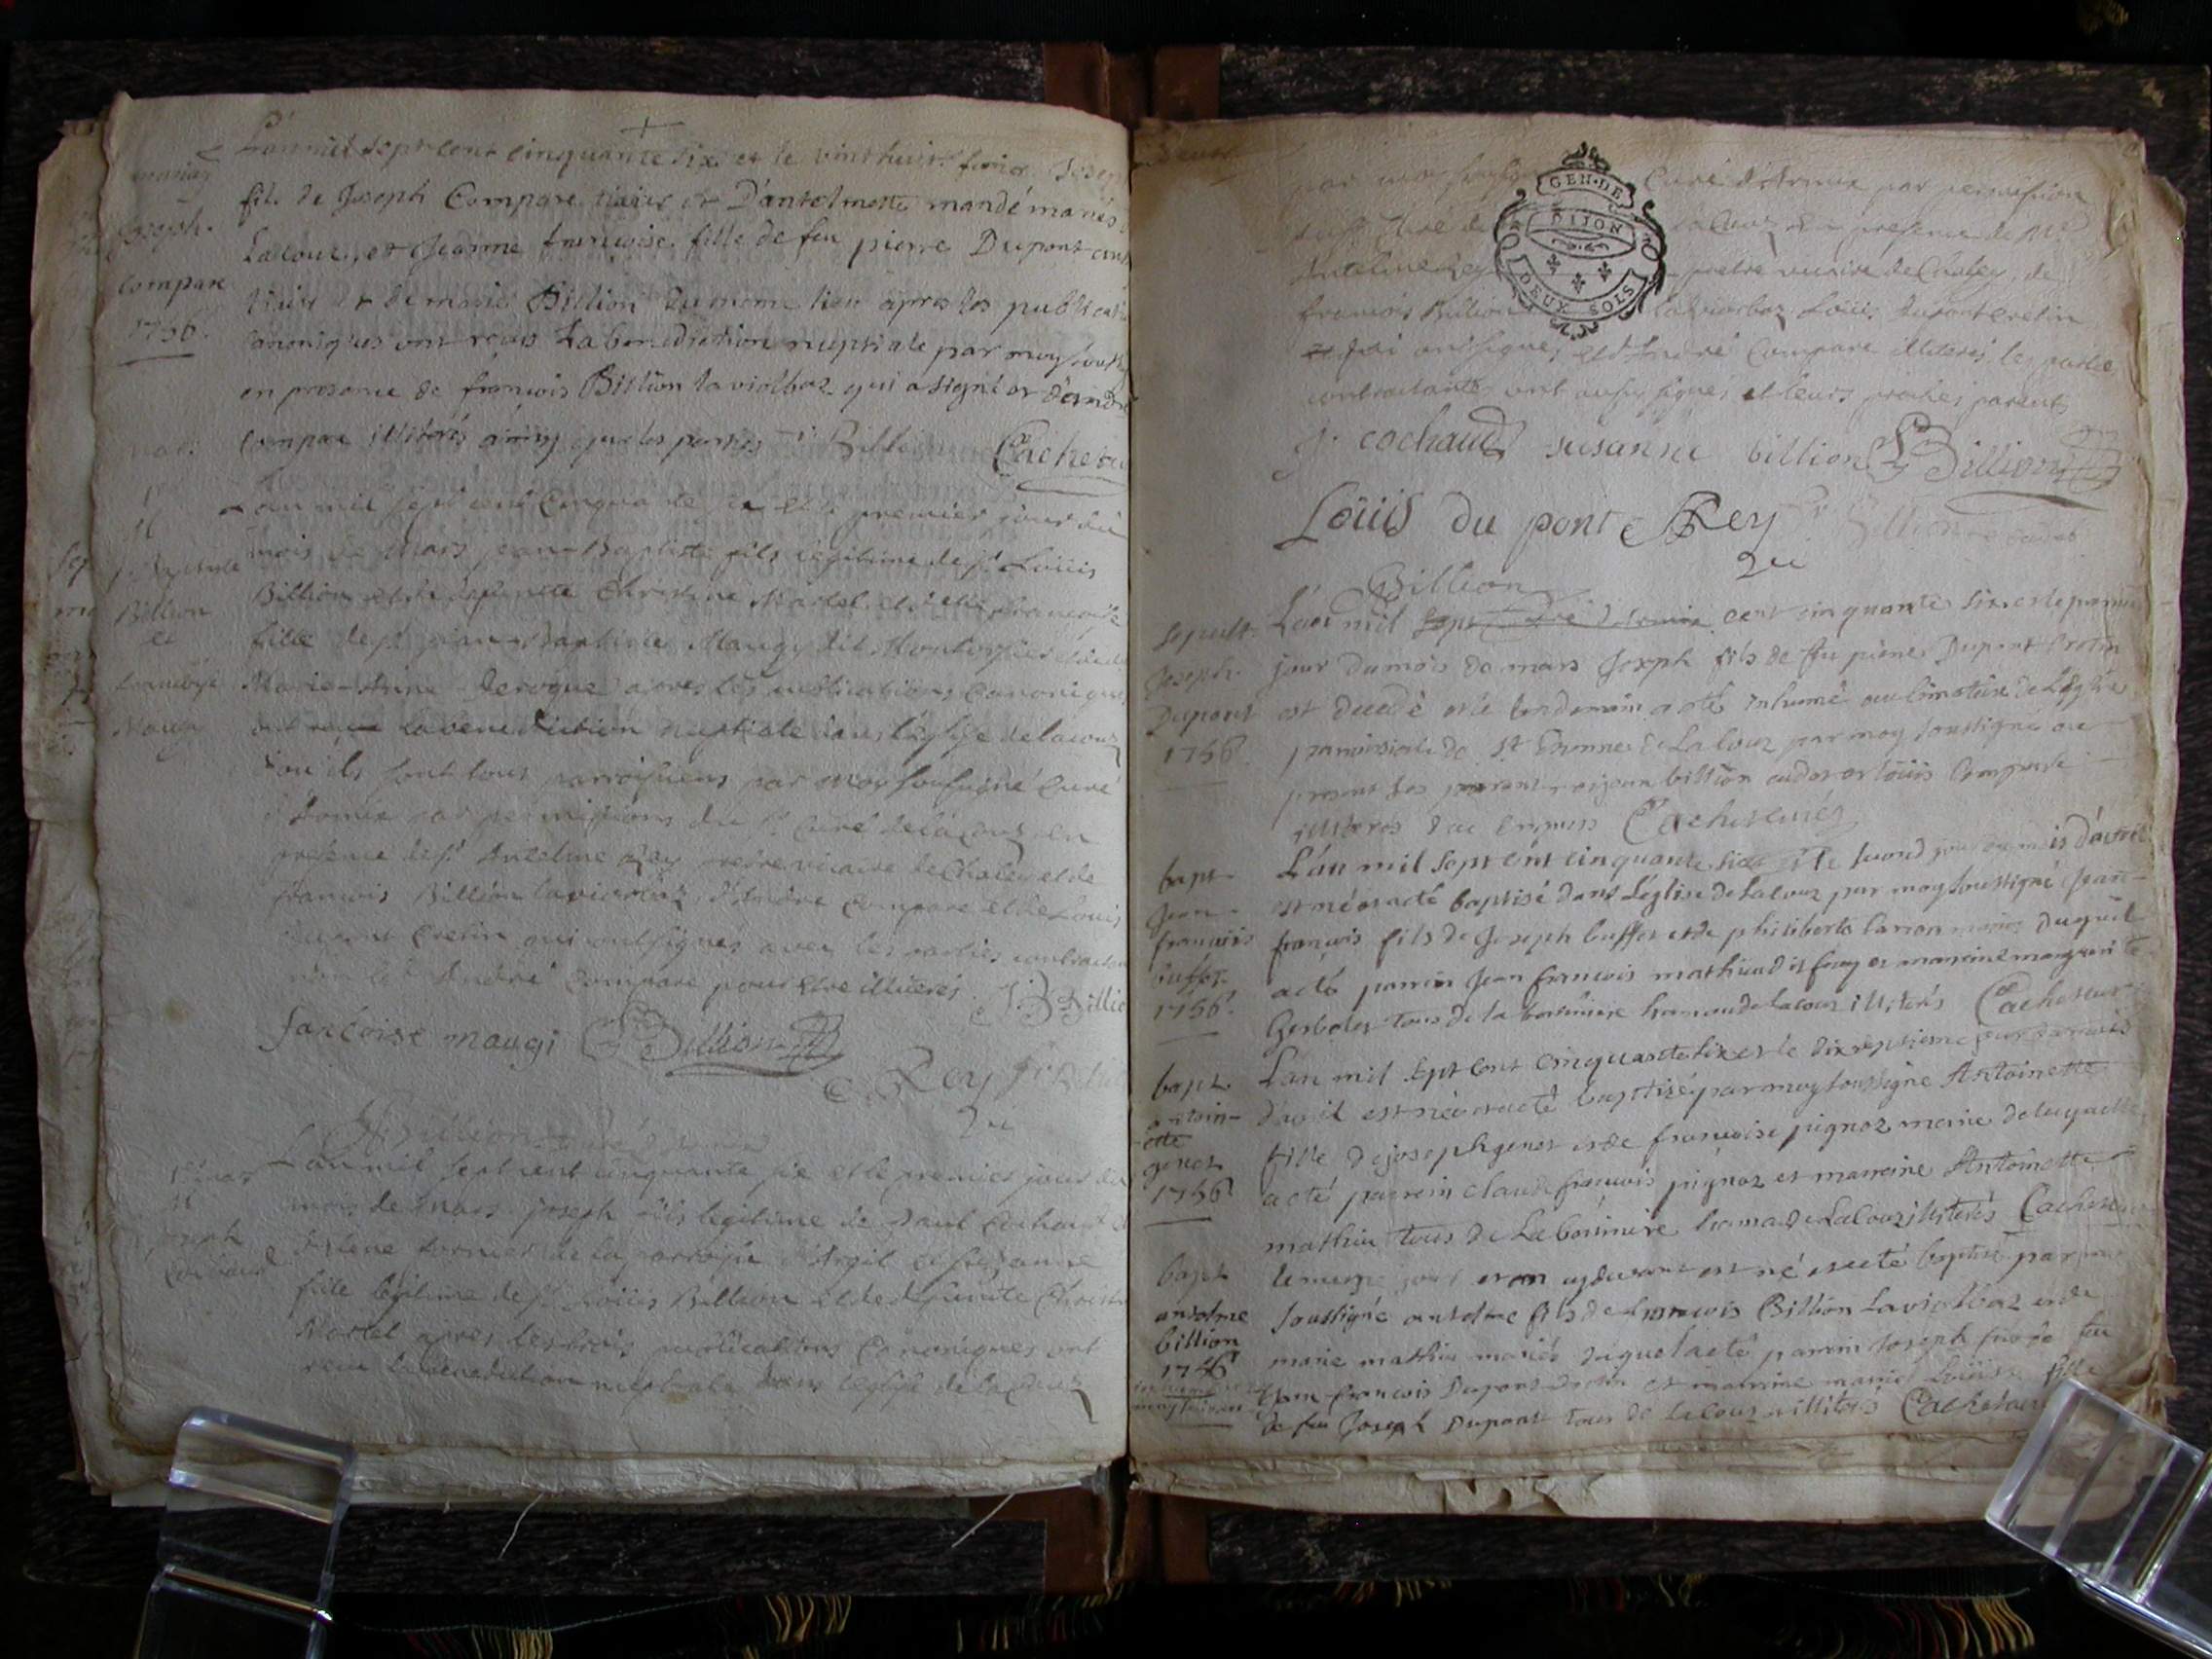 mariag
Joseph.
Compare
1756.
L'an mil sept cent cinquante six et le vint huit fevrier Joseph
fils de Joseph Compare tixier et D'antelmette mandé mariés
Lacouz, et Jeanne françoise fille de feu pierre Dupont
tixier et de marie Billion du meme lieu apres les publicati
canoniques ont reçus La benediction nuptiale par moy sous
en presence de françois Billion laviolbaz qui a signé et D'andre
Compare illiterés ainsy que les parties Billion Cacheteur
L'an mil sept cent cinquante six et le premier jour du
mois de Mars jean-Baptiste fils legitime de Sr Loüis
Billion et de deffuncte Christine Martel et françoise
fille de Sr jean-Baptiste Maugy dit Montorsier
Marie-Anne Deroque apres les publications Canoniques
ont la benediction nuptiale dans l'eglise de lacouz
d'ou ils sont tous parroissiens par moy soussigné Curé
par permissions du Sr Curé de lacouz en
presence de Sr Antelme Rey pretre vicaire de Chaley et de
francois Billion laviolbaz, d'Andre compare et de Louis
dupont Cretin qui ont signés avec les parties contractan
non le Sr André Compare pour etre illiterés J. B Billio
Billion
et
françoise
Maugy
françoise maugi Billion
Rey
Billion
L'an mil sept cent cinquante six et le premier jour du
mois de mars joseph fils legitime de Paul Cochaud
helene fornier de la parroisse d'Argil et susanne
fille legitime de Sr Loüis Billion et de defuncte Christi
Martel apres les trois publications Canoniques ont
recu la benediction nuptiale dans l'eglise de lacouz
Joseph
Cochaud
GEN·DE
DIJON
DEUX SOLS
par moy Curé d'Armix par permission
Curé de lacouz en presence de Mre
Antelme Rey pretre vicaire de Chaley, de
francois Billion laviolbaz, Loüis dupont cretin
qui ont signés et d'André Compare illiterés les parties
contractantes ont aussy signés et leurs proches parents
J. cochaud susanne billion Billion
Loüis du pont Rey
Billion
Sepult.
Joseph.
Dupont
1756.
L'an mil sept cent cinquante six et le premier
jour du mois de mars Joseph fils de feu pierre Dupont Cretin
est decedé et le lendemain a eté inhumé au cimetiere de L'Eglise
parroissiale de St Etienne de Lacouz par moy soussigné en
present ses parents jean billion et loüis Compare
illiteres de ce enquis Cacheteur
bapt.
Jean-
francois
buffet
1756.
L'an mil sept cent cinquante six et le second jour du mois d'avril
est né et a eté baptisé dans L'eglise de Lacouz par moy soussigné Jean-
francois fils de Joseph buffet et de philiberte Carron mariés duquel
a eté parrin Jean francois mathieu dit fouy et marreine marguerite
Gerbolet tous de la bouiniere hameau de lacouz illiterés Cacheteur
bapt.
Antoin-
ette
genet
1756
L'an mil sept cent cinquante six et le dix septieme jour du mois
d'avril est née et a eté baptisé par moy soussigné Antoinette
fille de joseph genet et de francoise pignoz mariés de laquelle
a eté parrein claude francois pignoz et marreine Antoinette
mathieu tous de La bouiniere hamea de Lacouz illiterés Cacheteur
bapt
antelme
billion
1756
le meme jour et an cy devant est né et a eté baptisé par moy
soussigné antelme fils de francois Billion Laviolbaz et de
marie mathieu mariés duquel a eté parrein Joseph fils de feu
Jean-francois Dupont Cretin et marreine marie Louise fille
de feu Joseph Dupont tous de Lacouz illiterés Cacheteur